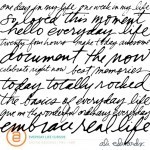 one day in my life one week in my life
so loved this moment
hello everyday life
twenty four hours
document the now
celebrate right now best memories
today totally rocked
the basics of everyday life
wonderful ordinary everyday
embrace real life
ali edwards